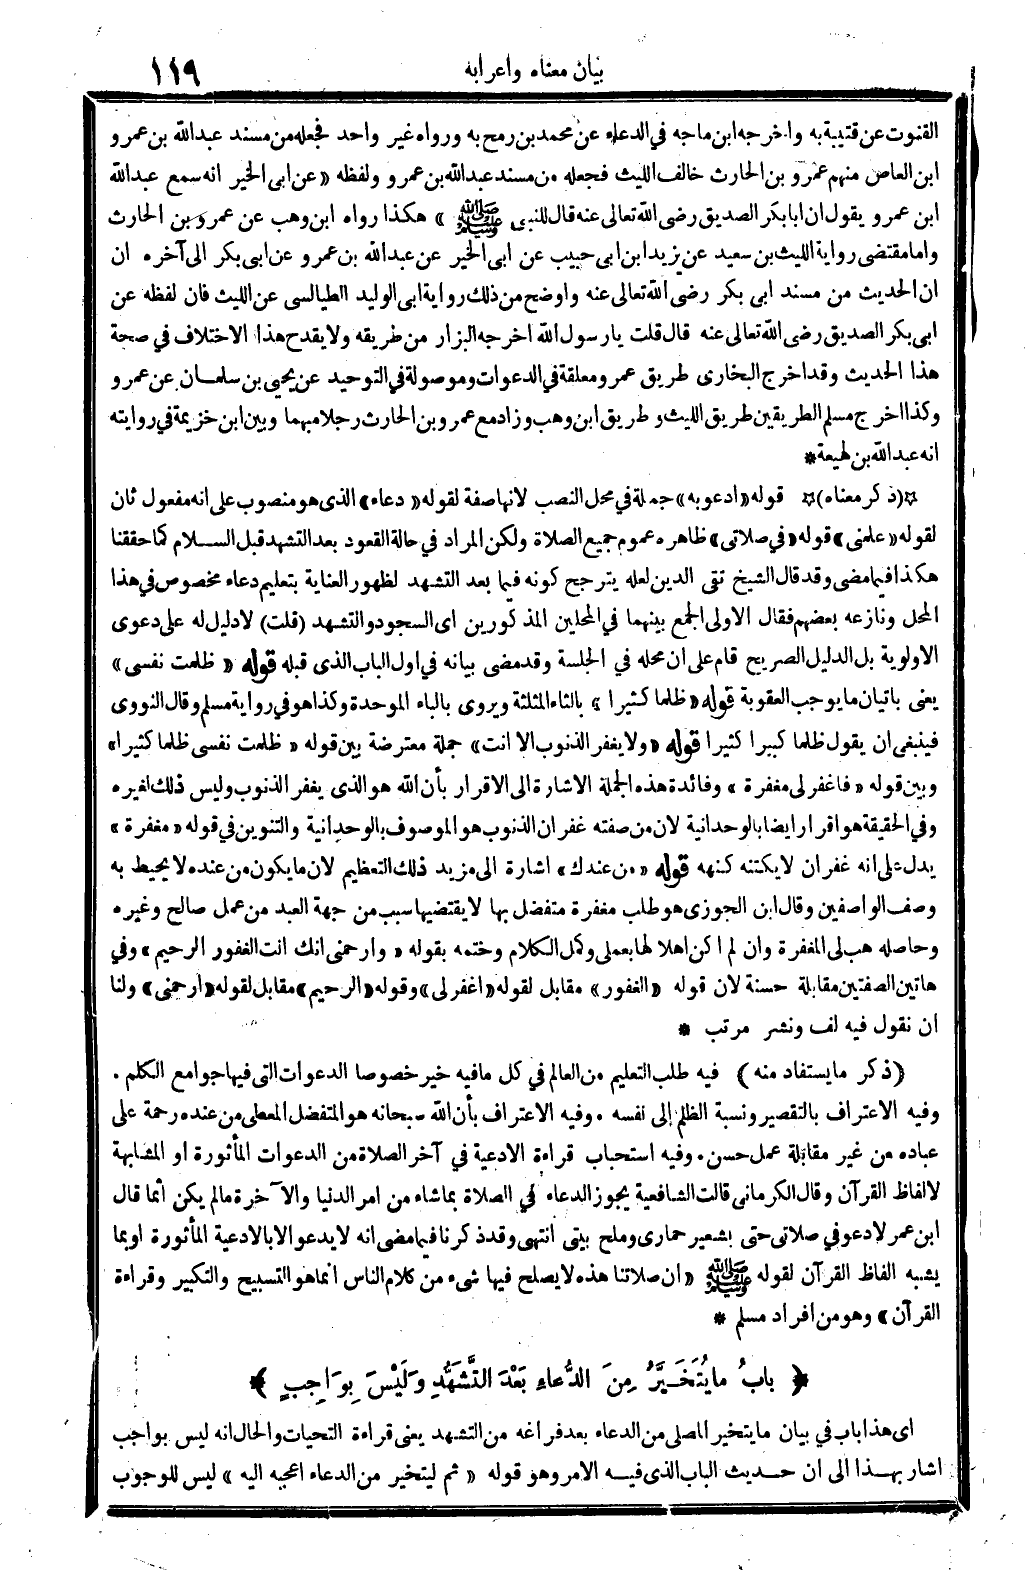 بيان معناه واعرابه
١١٩
القنوت عن قتيبة به واخرجه ابن ماجه في الدعاء عن محمد بن رمح به ورواه غير واحد فجعله من مسند عبد الله بن عمرو
ابن العاص منهم عمرو بن الحارث خالف الليث فجعله من مسند عبد الله بن عمرو ولفظه «عن ابى الخير انه سمع عبد الله
ابن عمرو يقول ان ابا بكر الصديق رضى الله تعالى عنه قال للنبى ﷺ» هكذا رواه ابن وهب عن عمرو بن الحارث
واما مقتضى رواية الليث بن سعيد عن يزيد ابن ابى حبيب عن ابى الخير عن عبد الله بن عمرو عن ابى بكر الى آخره ان
ان الحديث من مسند ابى بكر رضى الله تعالى عنه واوضح من ذلك رواية ابى الوليد الطيالسى عن الليث فان لفظه عن
ابى بكر الصديق رضى الله تعالى عنه قال قلت يارسول الله اخرجه البزار من طريقه ولا يقدح هذا الاختلاف في صحة
هذا الحديث وقد اخرج البخارى طريق عمرو معلقة في الدعوات وموصولة في التوحيد عن يحيى بن سلمان عن عمرو
وكذا اخرج مسلم الطريقين طريق الليث وطريق ابن وهب وزاد مع عمرو بن الحارث رجلا مبهما وبين ابن خزيمة في روايته
انه عبد الله بن لهيعة *
☆(ذكر معناه)☆ قوله «ادعو به» جملة في محل النصب لانها صفة لقوله «دعاء» الذى هو منصوب على انه مفعول ثان
لقوله «علمنى» قوله «في صلاتى» ظاهره عموم جميع الصلاة ولكن المراد في حالة القعود بعد التشهد قبل السلام كما حققنا
هكذا فيما مضى وقد قال الشيخ تقى الدين لعله يترجح كونه فيما بعد التشهد لظهور العناية بتعليم دعاء مخصوص في هذا
المحل ونازعه بعضهم فقال الاولى الجمع بينهما في المحلين المذكورين اى السجود والتشهد (قلت) لا دليل له على دعوى
الاولوية بل الدليل الصريح قام على ان محله في الجلسة وقد مضى بيانه في اول الباب الذى قبله قوله «ظلمت نفسى»
يعنى باتيان ما يوجب العقوبة قوله «ظلما كثيرا» بالثاء المثلثة ويروى بالباء الموحدة وكذا هو في رواية مسلم وقال النووى
فينبغى ان يقول ظلما كبيرا كثيرا قوله «ولا يغفر الذنوب الا انت» جملة معترضة بين قوله «ظلمت نفسى ظلما كثيرا»
وبين قوله «فاغفر لى مغفرة» وفائدة هذه الجملة الاشارة الى الاقرار بأن الله هو الذى يغفر الذنوب وليس ذلك لغيره
وفي الحقيقة هو اقرار ايضا بالوحدانية لان من صفته غفران الذنوب هو الموصوف بالوحدانية والتنوين في قوله «مغفرة»
يدل على انه غفران لا يكتنه كنهه قوله «من عندك» اشارة الى مزيد ذلك التعظيم لان ما يكون من عنده لا يحيط به
وصف الواصفين وقال ابن الجوزى هو طلب مغفرة متفضل بها لا يقتضيها سبب من جهة العبد من عمل صالح وغيره
وحاصله هب لى المغفرة وان لم اكن اهلا لها بعملى وكمل الكلام وختمه بقوله «وارحمنى انك انت الغفور الرحيم» وفي
هاتين الصفتين مقابلة حسنة لان قوله «الغفور» مقابل لقوله «اغفر لى» وقوله «الرحيم» مقابل لقوله «ارحمنى» ولنا
ان نقول فيه لف ونشر مرتب *
(ذكر ما يستفاد منه) فيه طلب التعليم من العالم في كل ما فيه خير خصوصا الدعوات التى فيها جوامع الكلم .
وفيه الاعتراف بالتقصير ونسبة الظلم إلى نفسه . وفيه الاعتراف بأن الله سبحانه هو المتفضل المعطى من عنده رحمة على
عباده من غير مقابلة عمل حسن . وفيه استحباب قراءة الادعية في آخر الصلاة من الدعوات المأثورة او المشابهة
لالفاظ القرآن وقال الكرمانى قالت الشافعية يجوز الدعاء في الصلاة بما شاء من امر الدنيا والآخرة ما لم يكن أثما قال
ابن عمر لادعو في صلاتى حتى بشعير حمارى وملح بيتى انتهى وقد ذكرنا فيما مضى انه لا يدعو الا بالادعية المأثورة او بما
يشبه الفاظ القرآن لقوله ﷺ «ان صلاتنا هذه لا يصلح فيها شىء من كلام الناس انما هو التسبيح والتكبير وقراءة
القرآن» وهو من افراد مسلم *
﴿ بابُ ما يُتَخَيَّرُ مِنَ الدُّعاءِ بَعْدَ التَّشَهُّدِ وَلَيْسَ بِوَاجِبٍ ﴾
اى هذا باب في بيان ما يتخير المصلى من الدعاء بعد فراغه من التشهد يعنى قراءة التحيات والحال انه ليس بواجب
اشار بهذا الى ان حديث الباب الذى فيه الامر وهو قوله «ثم ليتخير من الدعاء اعجبه اليه» ليس للوجوب